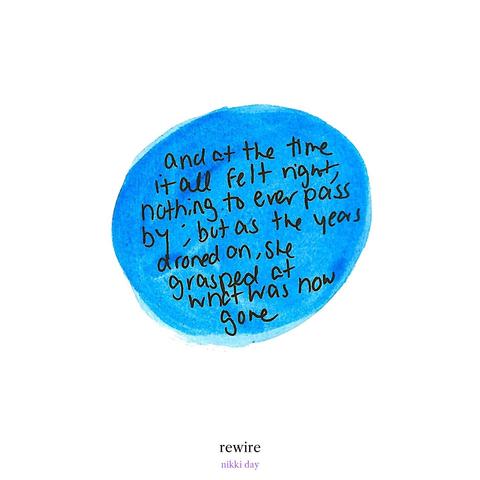 and at the time
it all felt right,
nothing to ever pass
by; but as the years
droned on, she
grasped at
what was now
gone
rewire
nikki day